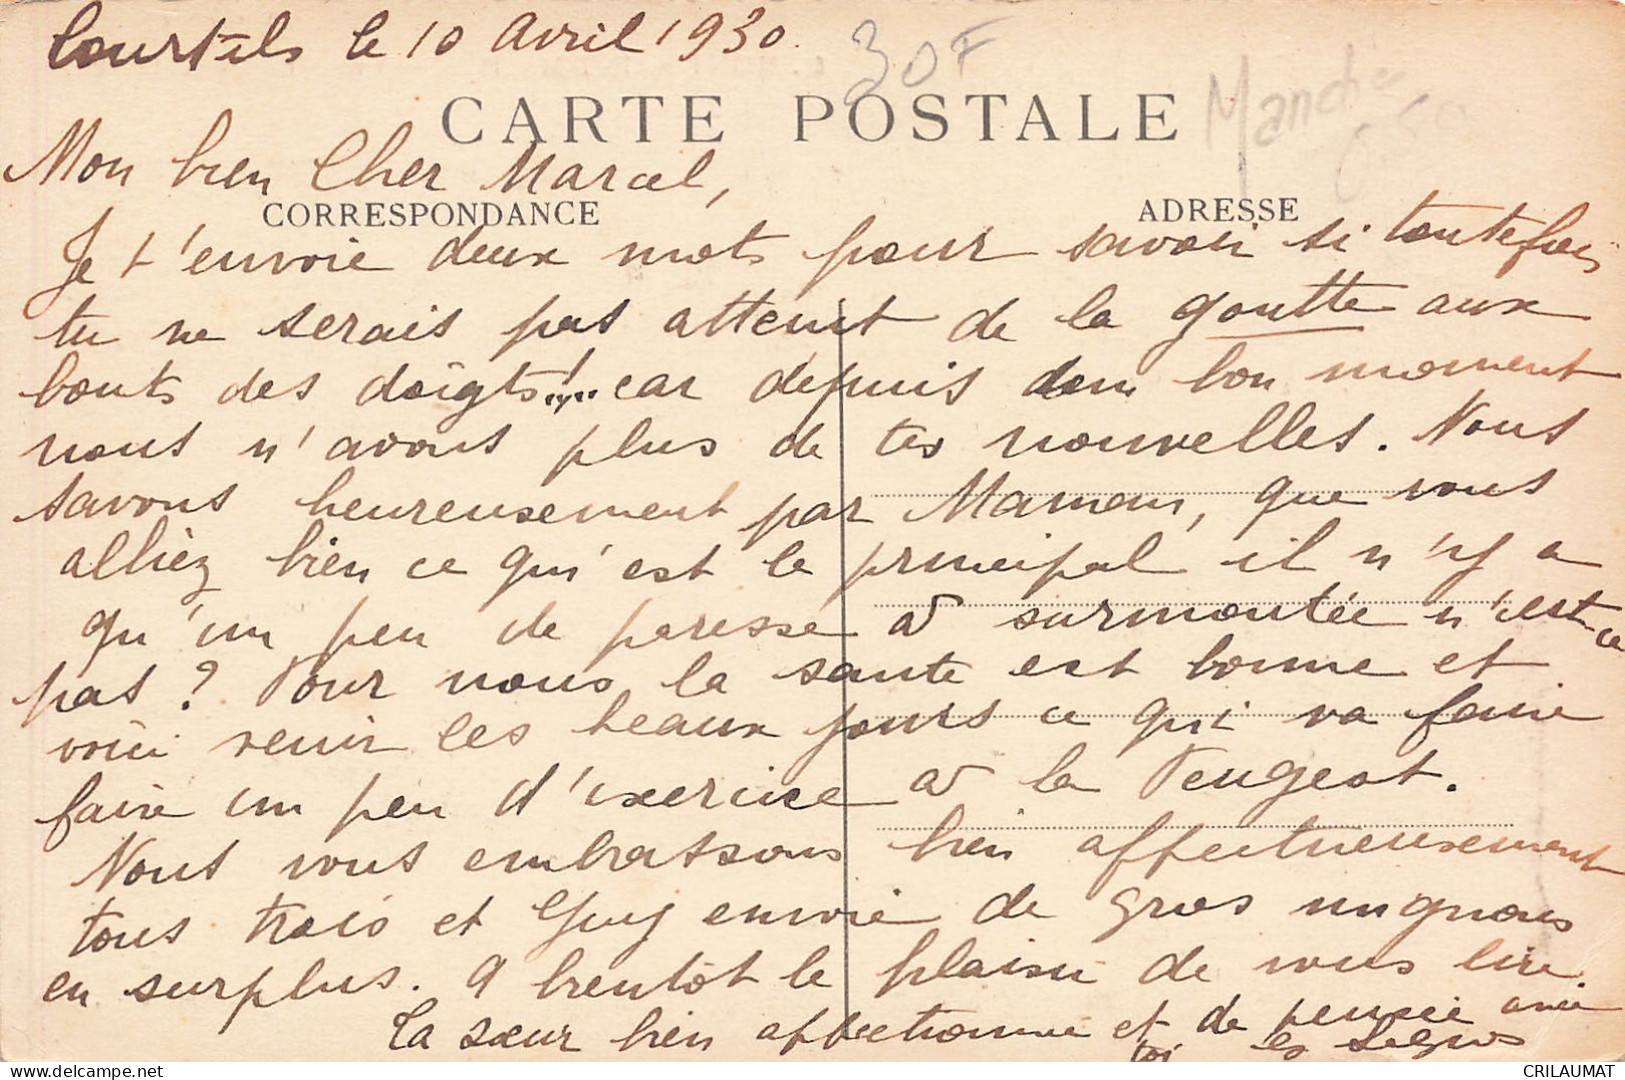 Courtils le 10 Avril 1930.
30F
Manche
CARTE POSTALE
Mon bien Cher Marcel,
CORRESPONDANCE
ADRESSE
Je t'envoie deux mots pour savoir si toutefois
tu ne serais pas atteint de la goutte aux
bouts des doigts!... car depuis bon moment
nous n'avons plus de tes nouvelles. Nous
savons heureusement par Maman, que vous
alliez bien ce qui est le principal il n'y a
qu'un peu de paresse à surmontée n'est-ce
pas ? Pour nous la sante est bonne et
voici venir les beaux jours ce qui va faire
faire un peu d'exercice à la Peugeot.
Nous vous embrassons bien affectueusement
tous trois et Guy envoie de gros mignons
en surplus. A bientôt le plaisir de vous lire
Ta sœur bien affectionnée et de pensée avec
toi les
CRILAUMAT